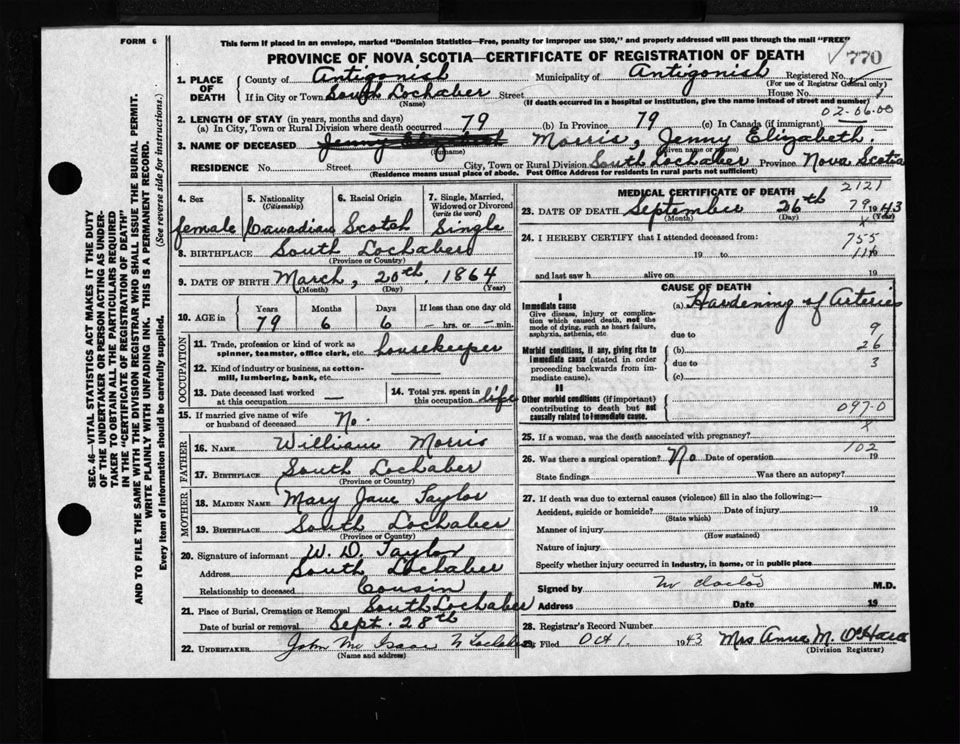 FORM 6
This form if placed in an envelope, marked "Dominion Statistics—Free, penalty for improper use $300," and properly addressed will pass through the mail "FREE"
PROVINCE OF NOVA SCOTIA—CERTIFICATE OF REGISTRATION OF DEATH
770
1. PLACE OF DEATH County of Antigonish Municipality of Antigonish Registered No.
(For use of Registrar General only)
If in City or Town South Lochaber Street House No.
(Name) (If death occurred in a hospital or institution, give the name instead of street and number)
02-06-00
2. LENGTH OF STAY (in years, months and days)
(a) In City, Town or Rural Division where death occurred 79 (b) In Province 79 (c) In Canada (if immigrant)
3. NAME OF DECEASED Jenny Elizabeth Morris, Jenny Elizabeth
(Surname) (Given name or names)
RESIDENCE No. Street, City, Town or Rural Division South Lochaber Province Nova Scotia
(Residence means usual place of abode. Post Office Address for residents in rural parts not sufficient)
4. Sex female
5. Nationality (Citizenship) Canadian
6. Racial Origin Scotch
7. Single, Married, Widowed or Divorced (write the word) Single
8. BIRTHPLACE South Lochaber
(Province or Country)
9. DATE OF BIRTH March, 20th. 1864
(Month) (Day) (Year)
10. AGE in Years Months Days If less than one day old
79 6 6 — hrs. or — min.
OCCUPATION
11. Trade, profession or kind of work as spinner, teamster, office clerk, etc. housekeeper
12. Kind of industry or business, as cotton-mill, lumbering, bank, etc. —
13. Date deceased last worked at this occupation —
14. Total yrs. spent in this occupation life
15. If married give name of wife or husband of deceased No.
FATHER
16. NAME William Morris
17. BIRTHPLACE South Lochaber
(Province or Country)
MOTHER
18. MAIDEN NAME Mary Jane Taylor
19. BIRTHPLACE South Lochaber
(Province or Country)
20. Signature of informant W. D. Taylor
Address South Lochaber
Relationship to deceased Cousin
21. Place of Burial, Cremation or Removal South Lochaber
Date of burial or removal Sept. 28th
22. UNDERTAKER John Mc Isaac
(Name and address)
MEDICAL CERTIFICATE OF DEATH
2121
23. DATE OF DEATH September 26th 1943
(Month) (Day) (Year)
79
24. I HEREBY CERTIFY that I attended deceased from:
755
19 to 19
and last saw h alive on 19
CAUSE OF DEATH
I
Immediate cause (a) Hardening of Arteries
Give disease, injury or complication which caused death, not the mode of dying, such as heart failure, asphyxia, asthenia, etc.
due to 9
Morbid conditions, if any, giving rise to immediate cause (stated in order proceeding backwards from immediate cause). (b) 26
due to 3
(c)
II
Other morbid conditions (if important) contributing to death but not causally related to immediate cause.
097-0
25. If a woman, was the death associated with pregnancy?
102
26. Was there a surgical operation? No Date of operation 19
State findings Was there an autopsy?
27. If death was due to external causes (violence) fill in also the following:—
Accident, suicide or homicide? Date of injury 19
(State which)
Manner of injury
(How sustained)
Nature of injury
Specify whether injury occurred in industry, in home, or in public place
Signed by no doctor M.D.
Address Date 19
28. Registrar's Record Number
29. Filed Oct 1. 1943 Mrs Anna M. O'Hara
(Division Registrar)
SEC. 46—VITAL STATISTICS ACT MAKES IT THE DUTY
OF THE UNDERTAKER OR PERSON ACTING AS UNDER-
TAKER TO OBTAIN ALL THE PARTICULARS REQUIRED
IN THE "CERTIFICATE OF REGISTRATION OF DEATH"
AND TO FILE THE SAME WITH THE DIVISION REGISTRAR WHO SHALL ISSUE THE BURIAL PERMIT.
WRITE PLAINLY WITH UNFADING INK. THIS IS A PERMANENT RECORD.
Every item of information should be carefully supplied. (See reverse side for instructions.)